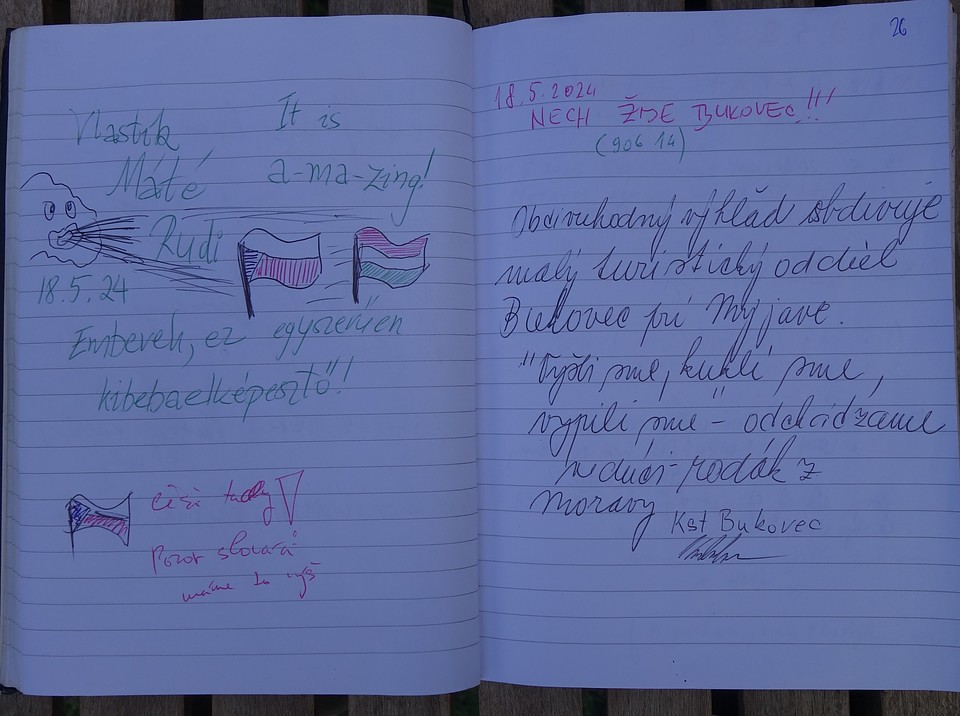 Vlastík
Máté
Rudi
It is
a-ma-zing!
18.5.24
Emberek, ez egyszerűen
kibebaelképesztő!!
Češi tady
Pozor slovará
máme to výš
26
18.5.2024
NECH ŽIJE BUKOVEC!!!
(906 14)
Obdivuhodný výhlad obdivuje
malý turistický oddiel
Bukovec pri Myjave.
"Vyšli sme, kukli sme,
vypili sme" - odchádzame
rodák z
Moravy
Kst Bukovec